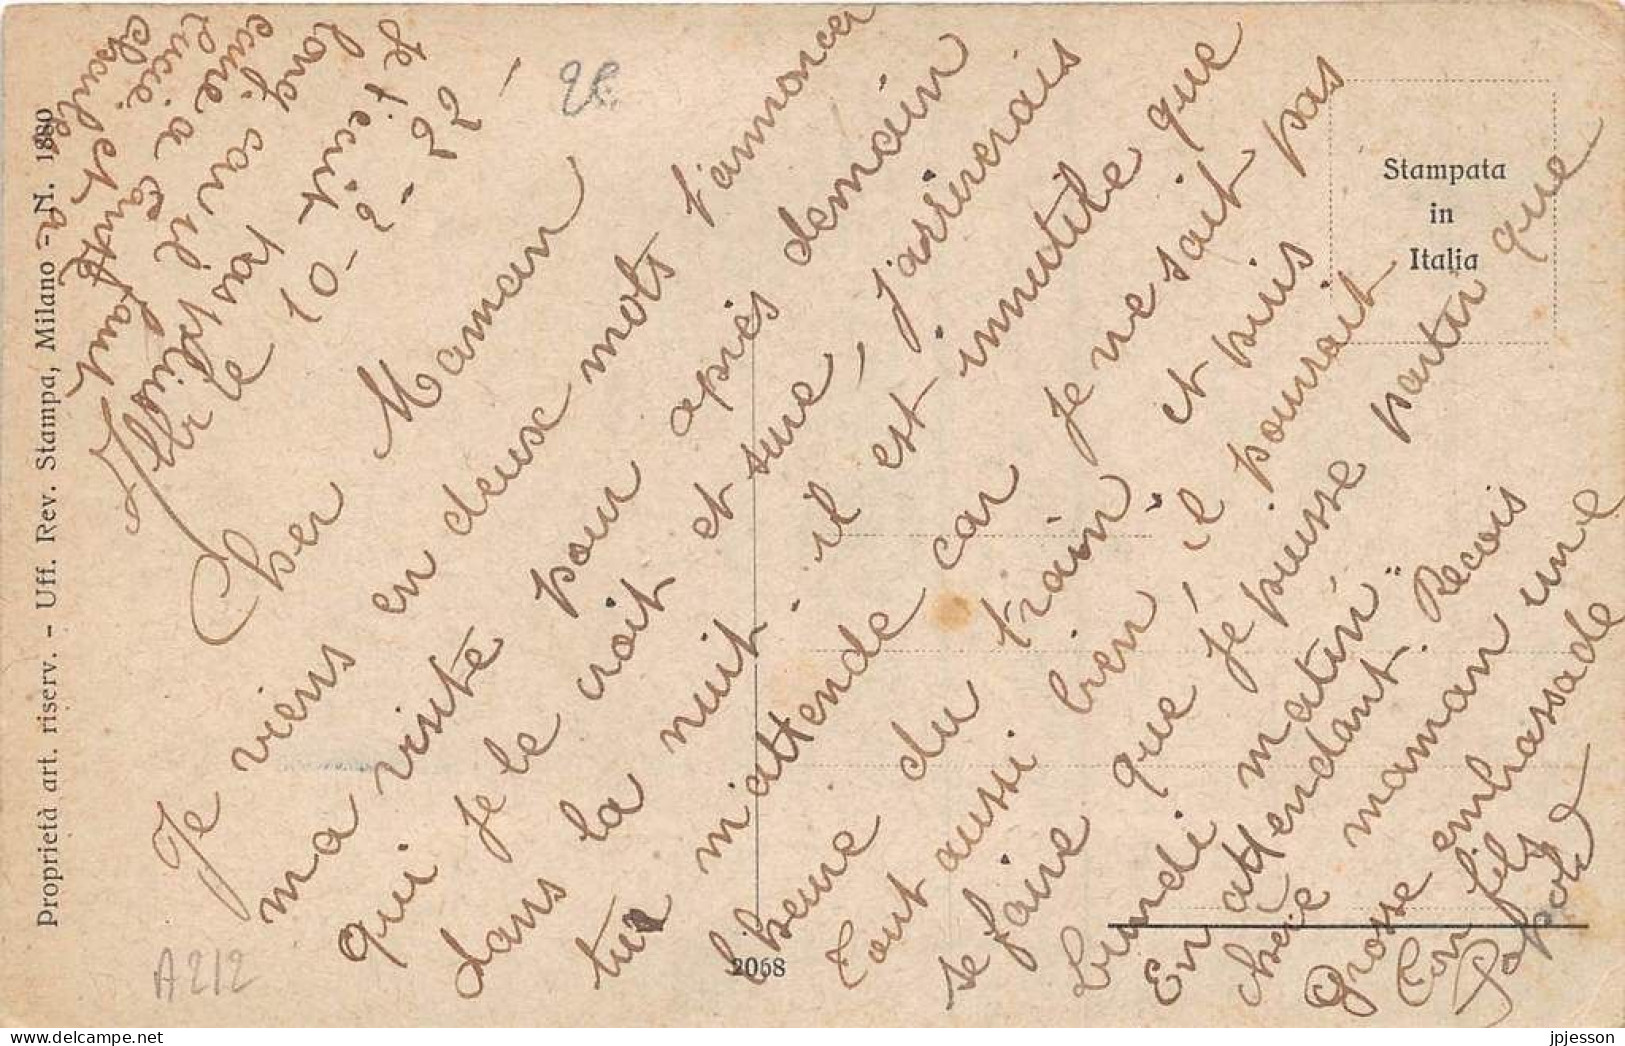 Cher Maman
Je viens en deux mots t'annoncer
ma visite pour après demain
qui je le croit et sure, j'arriverais
dans la nuit. il est innutile que
tu m'attende car je ne sait pas
l'heure du train. et puis
Tout aussi bien, il pourrait
se faire que je puisse partir que
Lundi matin.
En attendant. Recois
chère maman une
grosse embrassade
Ton fils
le 10-3-26
Je t'ecrit
long. car il
ecrire a
Lucie.
Stampata
in
Italia
Proprietà art. riserv. - Uff. Rev. Stampa, Milano - N. 1880
2068
A 212
jpjesson